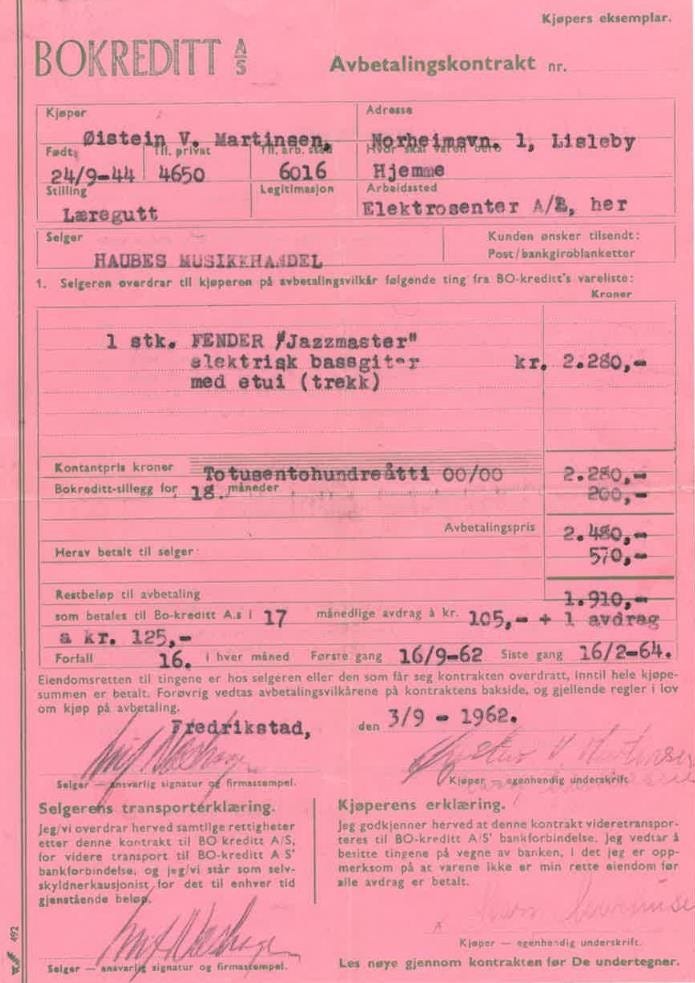 Kjøpers eksemplar.
BOKREDITT A/S
Avbetalingskontrakt nr.
Kjøper
Adresse
Øistein V. Martinsen, Norheimsvn. 1, Lisleby
Født: Tlf. privat Tlf. arb. sted Hvor skal varen bero
24/9-44 4650 6016 Hjemme
Stilling Legitimasjon Arbeidssted
Læregutt Elektrosenter A/S, her
Selger Kunden ønsker tilsendt:
HAUBES MUSIKKHANDEL Post/bankgiroblanketter
1. Selgeren overdrar til kjøperen på avbetalingsvilkår følgende ting fra BO-kreditt's vareliste:
Kroner
1 stk. FENDER "Jazzmaster"
elektrisk bassgiter kr. 2.280,-
med etui (trekk)
Kontantpris kroner Totusentohundreåtti 00/00 2.280,-
Bokreditt-tillegg for 18. måneder 200,-
Avbetalingspris 2.480,-
Herav betalt til selger: 570,-
Restbeløp til avbetaling 1.910,-
som betales til Bo-kreditt A.s i 17 månedlige avdrag à kr. 105,- + 1 avdrag
a kr. 125,-
Forfall 16. i hver måned Første gang 16/9-62 Siste gang 16/2-64.
Eiendomsretten til tingene er hos selgeren eller den som får seg kontrakten overdratt, inntil hele kjøpe-
summen er betalt. Forøvrig vedtas avbetalingsvilkårene på kontraktens bakside, og gjellende regler i lov
om kjøp på avbetaling.
Fredrikstad, den 3/9 - 1962.
Selger — ansvarlig signatur og firmastempel.
Kjøper — egenhendig underskrift.
Selgerens transporterklæring.
Jeg/vi overdrar herved samtlige rettigheter
etter denne kontrakt til BO kreditt A/S,
for videre transport til BO-kreditt A S'
bankforbindelse, og jeg/vi står som selv-
skyldnerkausjonist for det til enhver tid
gjenstående beløp.
Selger — ansvarlig signatur og firmastempel.
Kjøperens erklæring.
Jeg godkjenner herved at denne kontrakt videretranspor-
teres til BO-kreditt A/S' bankforbindelse. Jeg vedtar å
besitte tingene på vegne av banken, i det jeg er opp-
merksom på at varene ikke er min rette eiendom før
alle avdrag er betalt.
Kjøper — egenhendig underskrift.
Les nøye gjennom kontrakten før De undertegner.
492